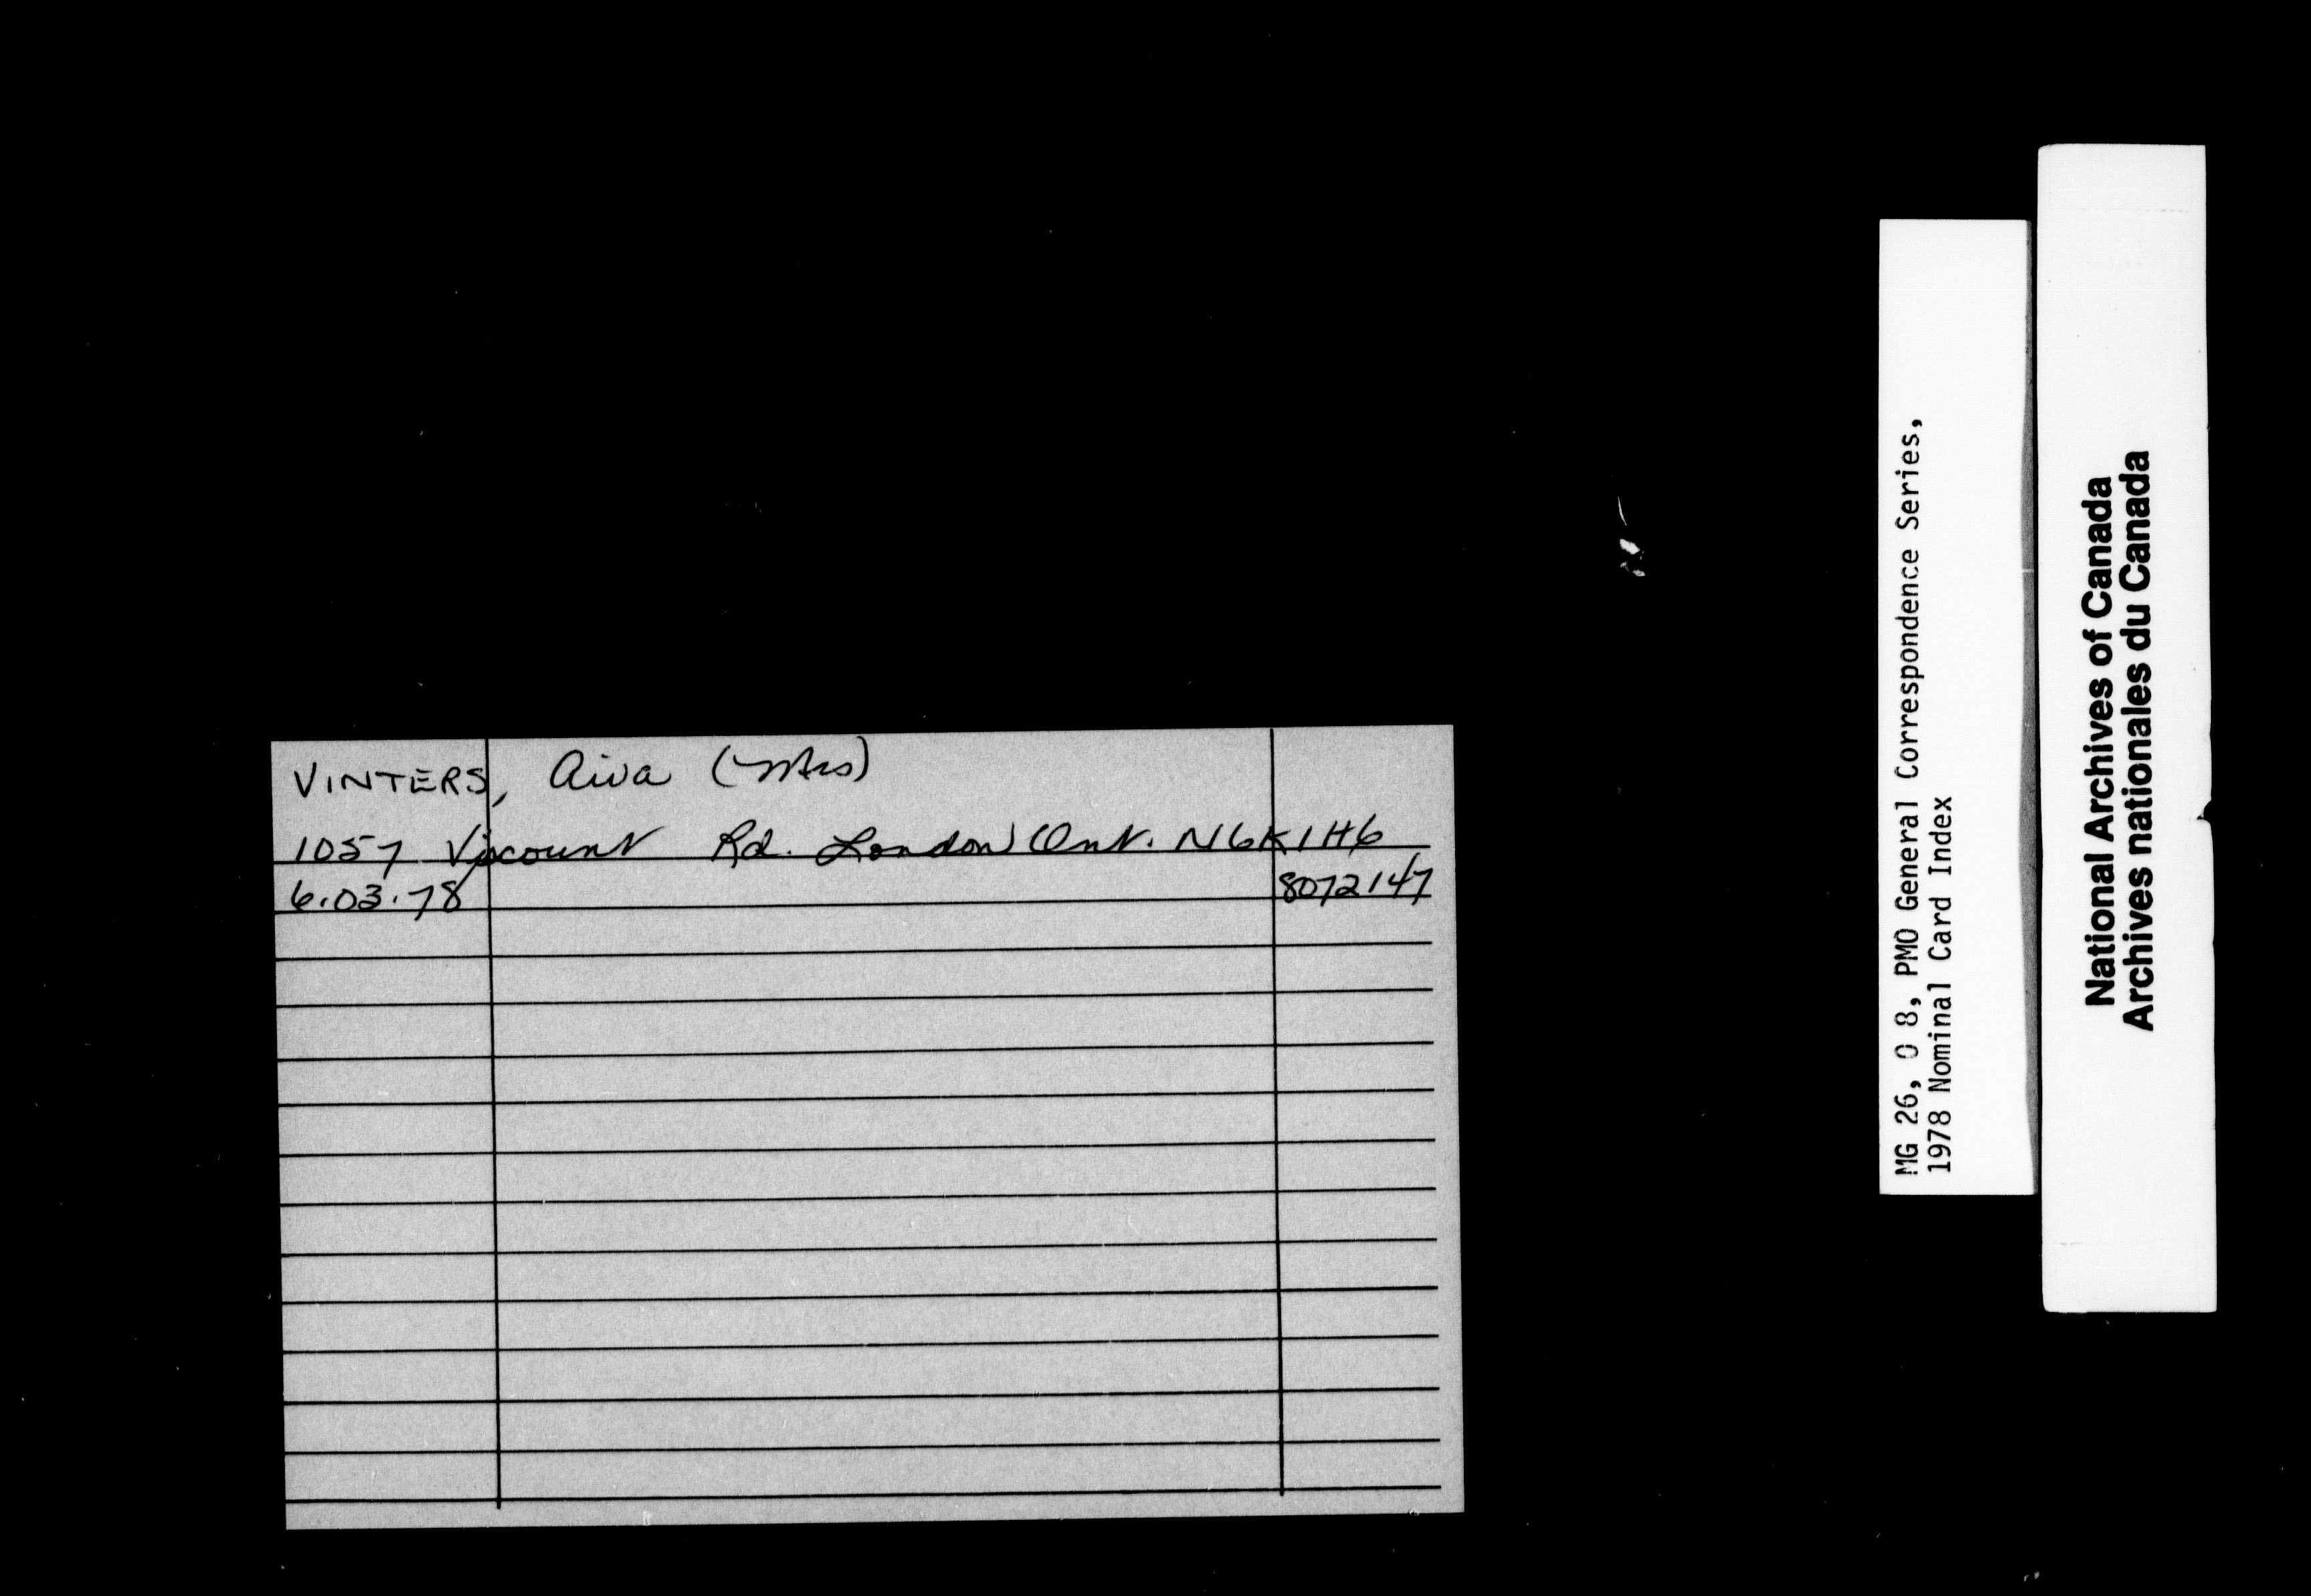 VINTERS, Aiva (Mrs)
1057 Viscount Rd. London Ont. N6K1H6
6.03.78 8072147
MG 26, O 8, PMO General Correspondence Series,
1978 Nominal Card Index
National Archives of Canada
Archives nationales du Canada